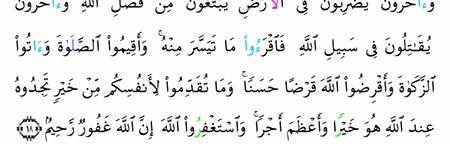 وَءَاخَرُونَ يَضْرِبُونَ فِى الْأَرْضِ يَبْتَغُونَ مِن فَضْلِ اللَّهِ وَءَاخَرُونَ
يُقَٰتِلُونَ فِى سَبِيلِ اللَّهِ فَاقْرَءُوا مَا تَيَسَّرَ مِنْهُ ۚ وَأَقِيمُوا الصَّلَوٰةَ وَءَاتُوا
الزَّكَوٰةَ وَأَقْرِضُوا اللَّهَ قَرْضًا حَسَنًا ۚ وَمَا تُقَدِّمُوا لِأَنفُسِكُم مِّنْ خَيْرٍ تَجِدُوهُ
عِندَ اللَّهِ هُوَ خَيْرًا وَأَعْظَمَ أَجْرًا ۚ وَاسْتَغْفِرُوا اللَّهَ إِنَّ اللَّهَ غَفُورٌ رَّحِيمٌ ١٨